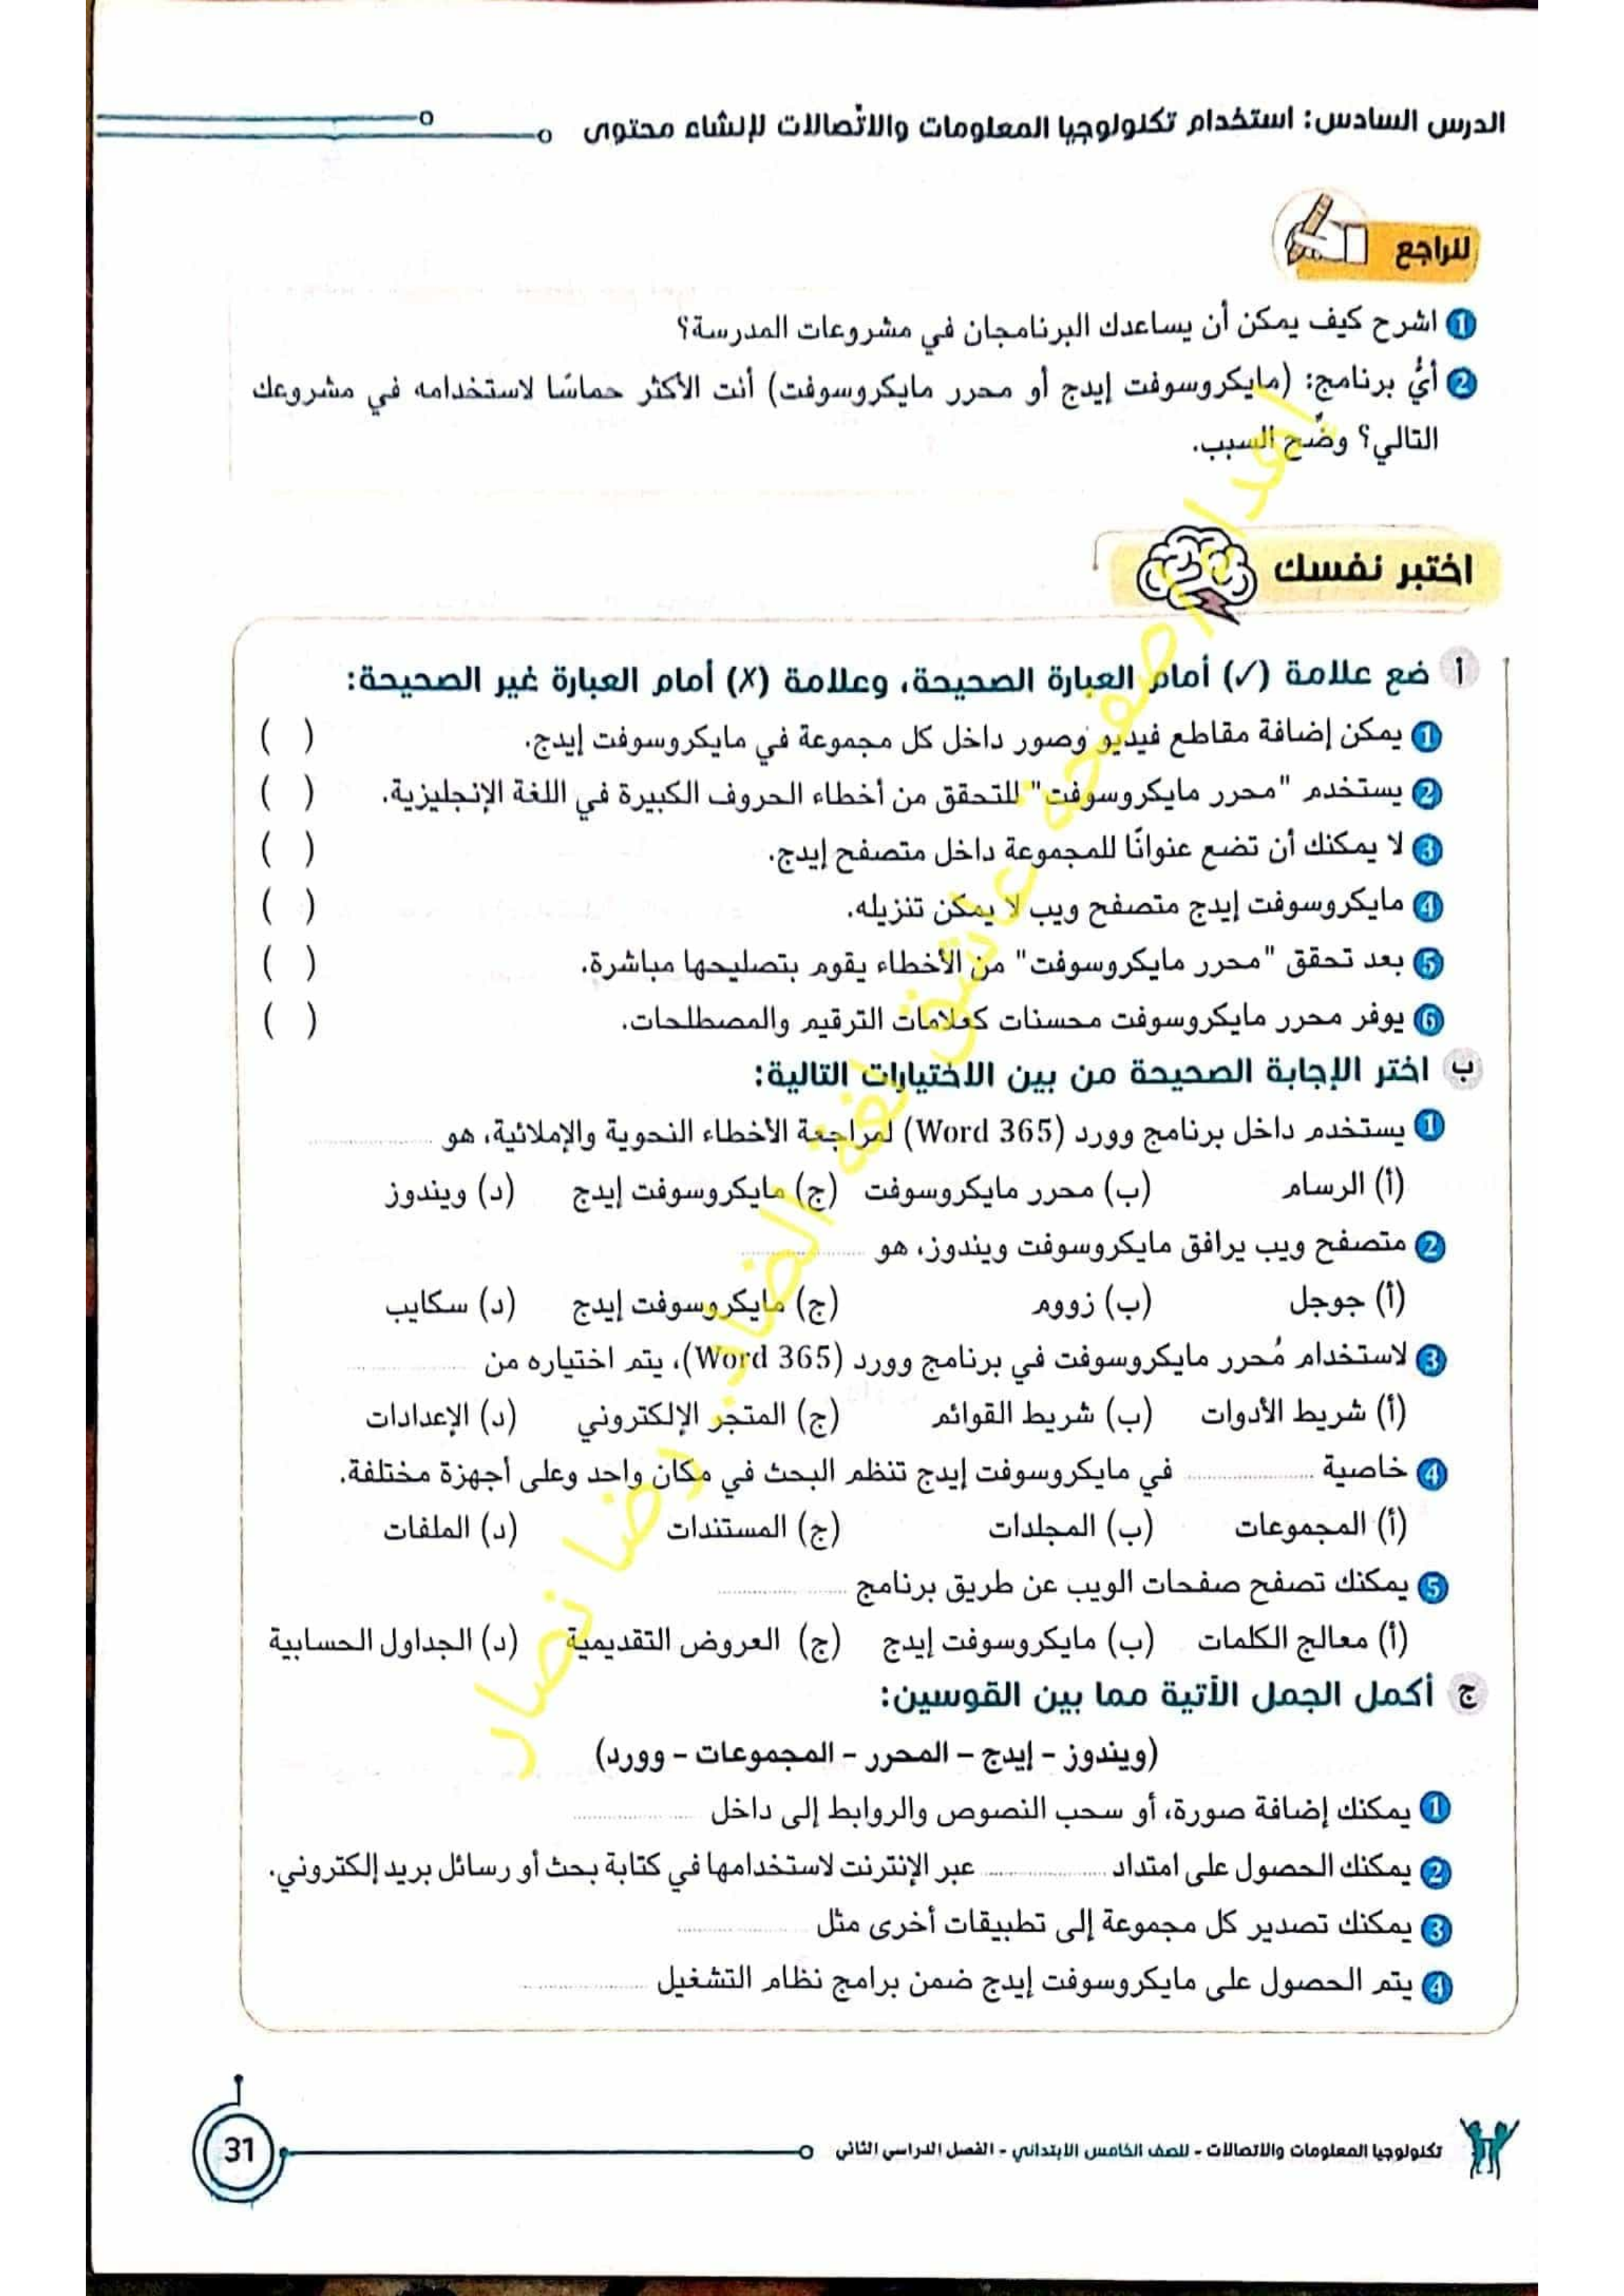 الدرس السادس: استخدام تكنولوجيا المعلومات والاتّصالات لإنشاء محتوى
للراجع
1 اشرح كيف يمكن أن يساعدك البرنامجان في مشروعات المدرسة؟
2 أيُّ برنامج: (مايكروسوفت إيدج أو محرر مايكروسوفت) أنت الأكثر حماسًا لاستخدامه في مشروعك
التالي؟ وضِّح السبب.
اختبر نفسك
أ ضع علامة (✓) أمام العبارة الصحيحة، وعلامة (✗) أمام العبارة غير الصحيحة:
1 يمكن إضافة مقاطع فيديو وصور داخل كل مجموعة في مايكروسوفت إيدج. ( )
2 يستخدم "محرر مايكروسوفت" للتحقق من أخطاء الحروف الكبيرة في اللغة الإنجليزية. ( )
3 لا يمكنك أن تضع عنوانًا للمجموعة داخل متصفح إيدج. ( )
4 مايكروسوفت إيدج متصفح ويب لا يمكن تنزيله. ( )
5 بعد تحقق "محرر مايكروسوفت" من الأخطاء يقوم بتصليحها مباشرة. ( )
6 يوفر محرر مايكروسوفت محسنات كعلامات الترقيم والمصطلحات. ( )
ب اختر الإجابة الصحيحة من بين الاختيارات التالية:
1 يستخدم داخل برنامج وورد (Word 365) لمراجعة الأخطاء النحوية والإملائية، هو ..........
(أ) الرسام (ب) محرر مايكروسوفت (ج) مايكروسوفت إيدج (د) ويندوز
2 متصفح ويب يرافق مايكروسوفت ويندوز، هو ..........
(أ) جوجل (ب) زووم (ج) مايكروسوفت إيدج (د) سكايب
3 لاستخدام مُحرر مايكروسوفت في برنامج وورد (Word 365)، يتم اختياره من ..........
(أ) شريط الأدوات (ب) شريط القوائم (ج) المتجر الإلكتروني (د) الإعدادات
4 خاصية .......... في مايكروسوفت إيدج تنظم البحث في مكان واحد وعلى أجهزة مختلفة.
(أ) المجموعات (ب) المجلدات (ج) المستندات (د) الملفات
5 يمكنك تصفح صفحات الويب عن طريق برنامج ..........
(أ) معالج الكلمات (ب) مايكروسوفت إيدج (ج) العروض التقديمية (د) الجداول الحسابية
ج أكمل الجمل الآتية مما بين القوسين:
(ويندوز - إيدج - المحرر - المجموعات - وورد)
1 يمكنك إضافة صورة، أو سحب النصوص والروابط إلى داخل ..........
2 يمكنك الحصول على امتداد .......... عبر الإنترنت لاستخدامها في كتابة بحث أو رسائل بريد إلكتروني.
3 يمكنك تصدير كل مجموعة إلى تطبيقات أخرى مثل ..........
4 يتم الحصول على مايكروسوفت إيدج ضمن برامج نظام التشغيل ..........
إهداء صفحة عاشق لغة الضاد. رضا نصار
تكنولوجيا المعلومات والاتصالات - للصف الخامس الابتدائي - الفصل الدراسي الثاني
31